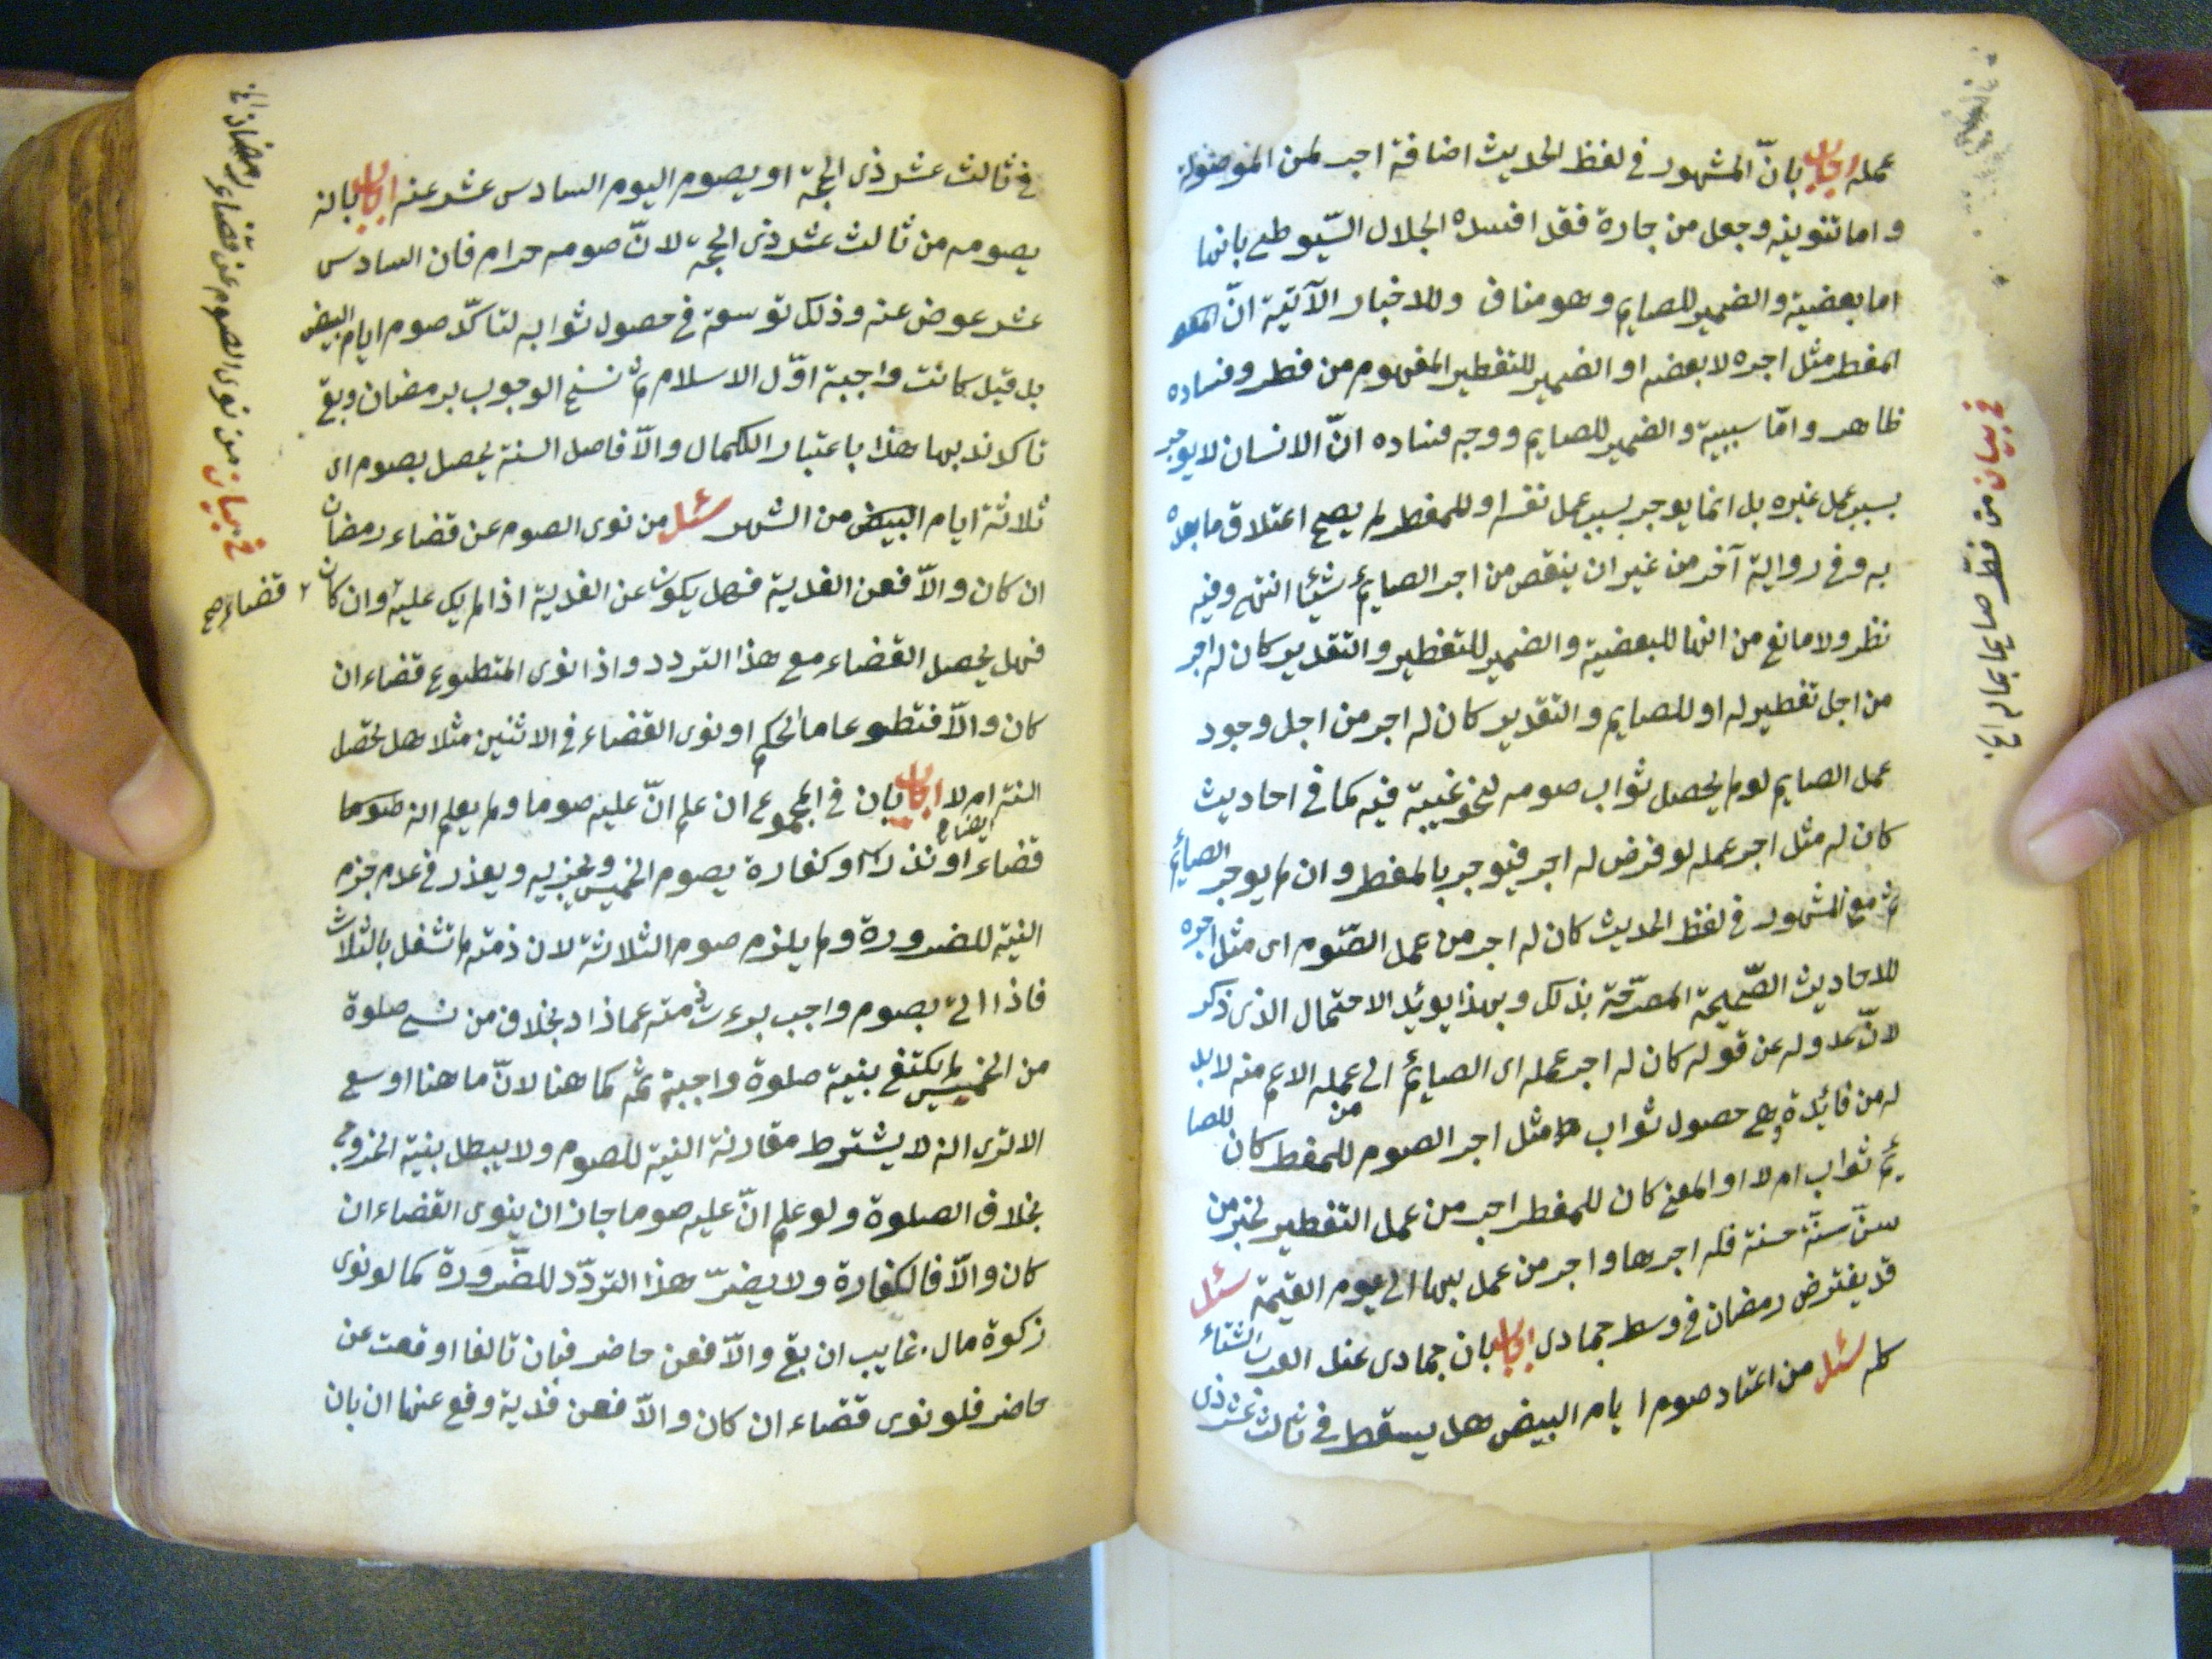 عمله اجاب بانّ المشهور في لفظ الحديث اضافة اجر لمن الموصولة
واما تنوينه وجعل من جارة فقد افسده الجلال السّيوطي بانها
اما بعضية والضمير للصايم وهو مناف وللاخبار الآتية انّ
المفطر مثل اجره لا بعضه او الضمير للتفطير المفهوم من فطر وفساده
ظاهر وامّا سببية والضمير للصايم ووجه فساده انّ الانسان لا يوجر
بسبب عمل غيره بل انما يوجر بسبب عمل نفسه او للمفطر لم يصح اعتلاق ما بعده
به وفي رواية آخر من غير ان ينقص من اجر الصايم شيئا انتهى وفيه
نظر ولا مانع من انها للبعضية والضمير للتفطير والتقدير كان له اجر
من اجل تفطيره له او للصايم والتقدير كان له اجر من اجل وجود
عمل الصايم لو لم يحصل ثواب صومه لنحو غيبة فيه كما في احاديث
كان له مثل اجر عمله لو فرض له اجر فيوجر بالمفطر وان لم يوجر الصايم
ثم مع المشهور في لفظ الحديث كان له اجر من عمل الصّوم اي مثل اجره
للاحاديث الصّحيحة المصرّحة بذلك وبهذا يوئيد الاحتمال الذي ذكر
لانّ عدوله عن قوله كان له اجر عمله اي الصايم الى عمله الاعم منه لا بد
له من فائدة وهي حصول ثواب مثل اجر الصوم للمفطر كان من للصا
يم ثواب ام لا او المعنى كان للمفطر اجر من عمل التفطير لخبر من
سنّ سنّة حسنة فله اجرها واجر من عمل بها الى يوم القيمة سئل
قد يفترض رمضان في وسط جمادى اجاب بان جمادى عند العرب الشتاء
كله سئل من اعتاد صوم ايام البيض هل يسقط في ثالث عشر ذي
في بيان من فطر صايما بماله الخ
في ثالث عشر ذي الحجة او يصوم اليوم السادس عشر عنه اجاب بانه
يصومه من ثالث عشر ذي الحجة لانّ صومه حرام فان السادس
عشر عوض عنه وذلك توسعة في حصول ثوابه لتاكّد صوم ايام البيض
بل قيل كانت واجبة اوّل الاسلام ثم نسخ الوجوب برمضان وبقي
تاكد ندبها هذا باعتبار الكمال والاّ فاصل السنة يحصل بصوم اى
ثلاثة ايام البيض من الشهر سئل من نوى الصوم عن قضاء رمضان
ان كان والاّ فعن الفدية فهل يكون عن الفدية اذا لم يك عليه وان كان قضاء صح
فهل يحصل القضاء مع هذا التردد واذا نوى المتطوع قضاء ان
كان والاّ فتطوعا ما الحكم او نوى القضاء في الاثنين مثلا هل تحصل
السنة ام لا اجاب بان في المجموع ان علم انّ عليه صوما ولم يعلم انه صوما
قضاء او نذرا او كفارة يصوم الخميس ويجزيه ويعذر في عدم جزم
النية للضرورة ولم يلزم صوم الثلاثة لان ذمته لم تشغل بالثلاث
فاذا اتى بصوم واجب برءت ذمته عما ذا د بخلاف من نسي صلوة
من الخميس لم يكتفى بنية صلوة واجبة ثم كما هنا لانّ ما هنا اوسع
الا ترى انه لا يشترط مقارنة النية للصوم ولا يبطل بنية الخروج
بخلاف الصلوة ولو علم انّ عليه صوما جاز ان ينوى القضاء ان
كان والاّ فالكفارة ولا يضرّ هذا التردّد للضّرورة كما لو نوى
زكوة مال غايب ان بقي والاّ فعن حاضر فبان تالفا اوقعت عن
حاضر فلو نوى قضاء ان كان والاّ فعن فدية وقع عنها ان بان
في بيان من نوى الصوم عن قضاء رمضان الخ